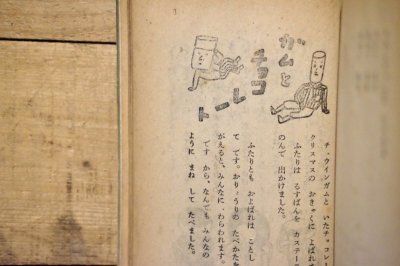 ガムと
チョコ
レート
チュウインガムと いたチョコレー
クリスマスの おきゃくに よばれ
ふたりは るすばんを カステーラ
のんで 出かけました。
ふたりとも およばれは ことし
て です。おりょうりの たべかたを
がえると、みんなに わらわれます。
です から、なんでも みんなの
ように まね して たべました。